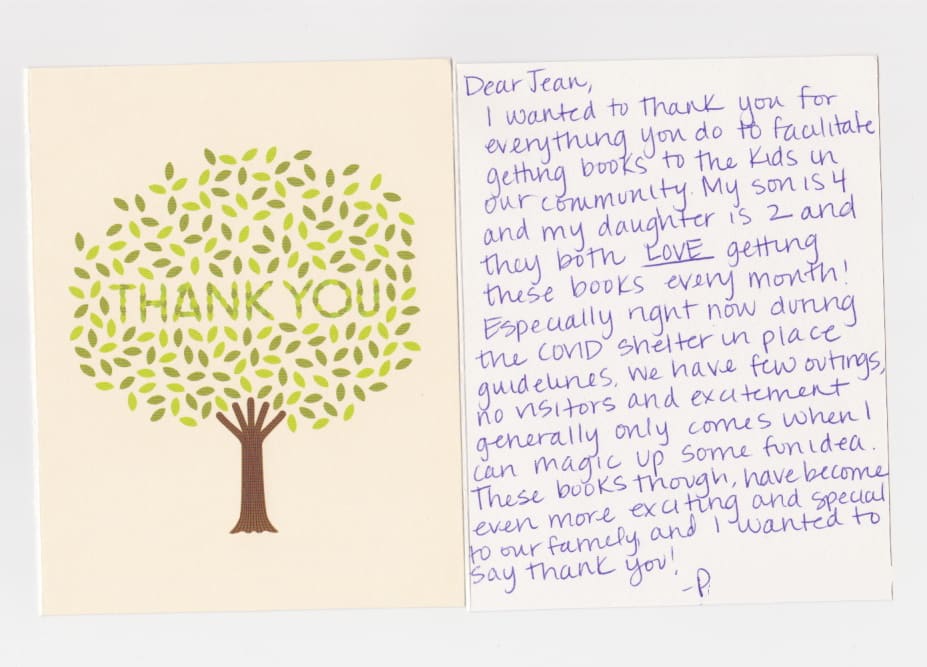 THANK YOU
Dear Jean,
I wanted to thank you for
everything you do to facilitate
getting books to the kids in
our community. My son is 4
and my daughter is 2 and
they both LOVE getting
these books every month!
Especially right now during
the COVID shelter in place
guidelines, we have few outings,
no visitors and excitement
generally only comes when I
can magic up some fun idea.
These books though, have become
even more exciting and special
to our family, and I wanted to
say thank you!
-P.